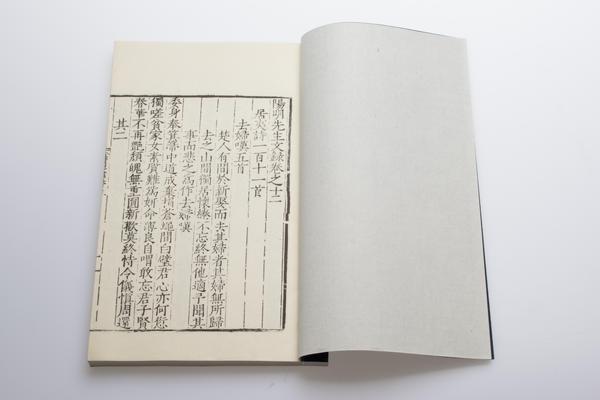 陽明先生文錄卷之十二
居夷詩一百十一首
去婦嘆五首
楚人有間於新娶而去其婦者其婦無所歸
去之山間獨居懷綣不忘終無他適予聞其
事而悲之爲作去婦嘆
委身奉箕帚中道成棄捐蒼蠅間白璧君心亦何愆
獨嗟貧家女素質難爲妍命薄良自喟敢忘君子賢
春華不再艷頹魄無重圓新歡莫終恃令儀慎周還
其二